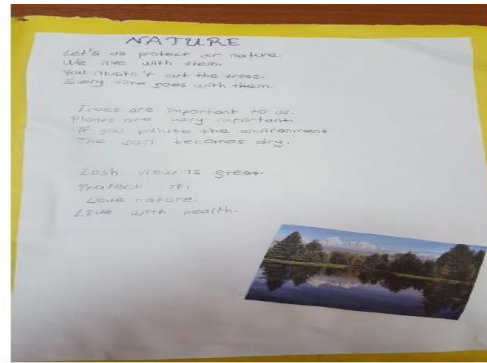 NATURE
Let's us protect our nature.
We live with them.
You mustn't cut the trees.
Every time goes with them.
Trees are important to us.
Plants are very important.
If you pollute the environment
The soil becomes dry.
Lash view is great.
Protect it.
Love nature.
Live with health.